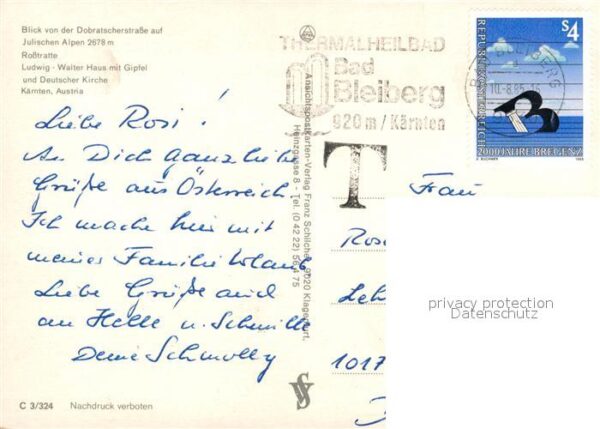 Blick von der Dobratscherstraße auf
Julischen Alpen 2678 m
Roßtratte
Ludwig - Walter Haus mit Gipfel
und Deutscher Kirche
Kärnten, Austria
Liebe Rosi!
An Dich ganz liebe
Grüße aus Österreich.
Ich mache hier mit
meiner Familie Urlaub.
Liebe Grüße auch
an Helle u.
Deine Schmolly
C 3/324 Nachdruck verboten
Ansichtspostkarten-Verlag Franz Schilcher, 9020 Klagenfurt,
Heinzgasse 8 - Tel. (0 42 22) 56 4 75
THERMALHEILBAD
Bad
Bleiberg
920 m / Kärnten
BAD BLEIBERG
10.-8.85-15
S 4
REPUBLIK ÖSTERREICH
2000 JAHRE BREGENZ
1985
T
Frau
Rosi
Leh
1017
privacy protection
Datenschutz